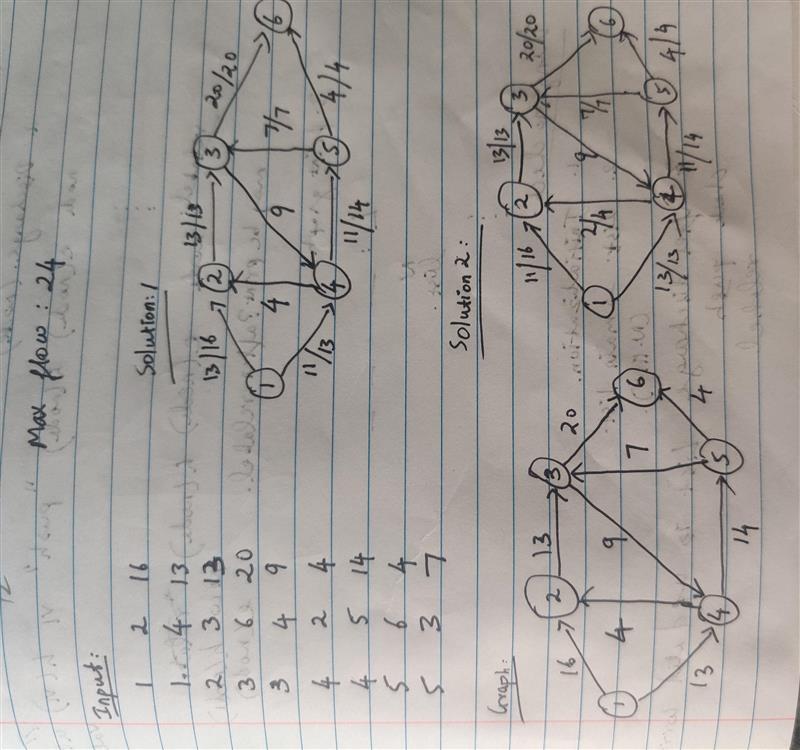 Max flow : 24
Input:
1 2 16
1 4 13
2 3 13
3 6 20
3 4 9
4 2 4
4 5 14
5 6 4
5 3 7
Solution:1
13/13
20/20
2
3
13/16
1
4
9
7/7
6
11/13
4/4
4
5
11/14
Graph:
13
20
2
3
16
1
4
9
7
6
13
4
4
5
14
Solution 2:
13/13
20/20
2
3
11/16
1
2/4
9
7/7
6
13/13
4/4
4
5
11/14